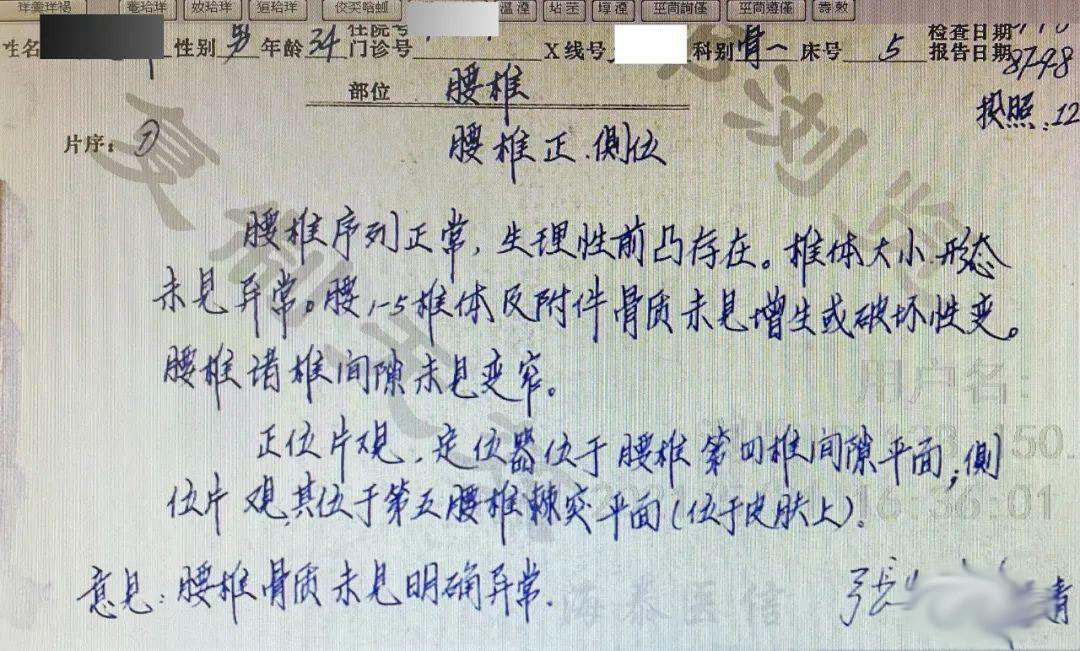 姓名 性别 男 年龄 34 住院号
门诊号 X线号 科别 骨一 床号 5 检查日期
报告日期 87-9-8
部位 腰椎
投照:12
片序:① 腰椎正.侧位
腰椎序列正常,生理性前凸存在。椎体大小形态
未见异常。腰1-5椎体及附件骨质未见增生或破坏性变。
腰椎诸椎间隙未见变窄。
正位片观,定位器位于腰椎第四椎间隙平面;侧
位片观,其位于第五腰椎棘突平面(位于皮肤上)。
意见:腰椎骨质未见明确异常.
张 青
用户名:
150.
16:36:01
海泰医信
复制无效
浏览